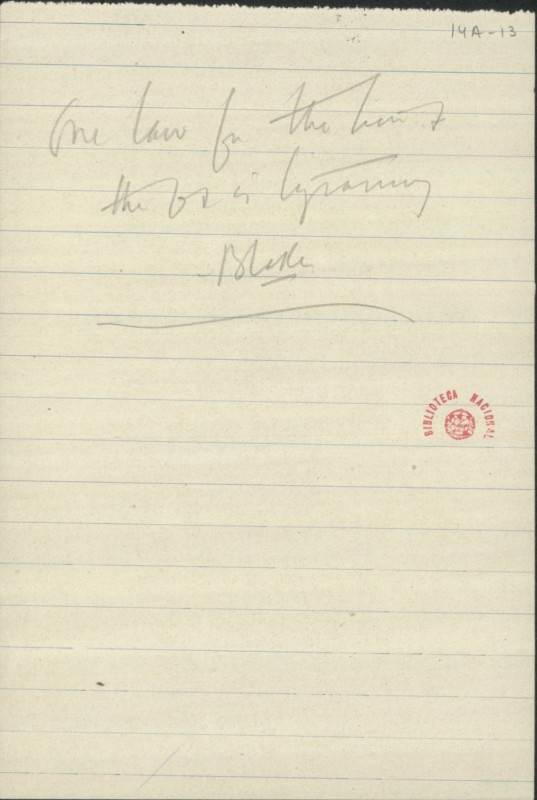 14A-13
One law for the lion &
the ox is tyranny
- Blake
BIBLIOTECA NACIONAL